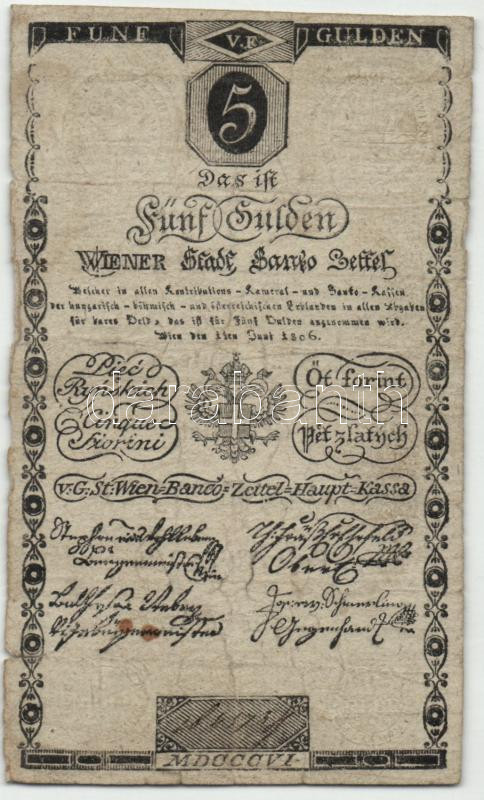 FUNF V.F. GULDEN
5
Das ist
Fünf Gulden
WIENER Stadt Banko Zettel
Welcher in allen Kontributions- Kameral- und Banko-Kassen
der hungarisch-böhmisch- und österreichischen Erblanden in allen Abgaben
für bares Geld, das ist für Fünf Gulden angenommen wird.
Wien den 1ten Juni 1806.
Pięć Ryńskich
Öt forint
Cinque Fiorini
Pět zlatych
darabanth
v: G: St: Wien=Banco=Zettel=Haupt=Kassa
MDCCCVI